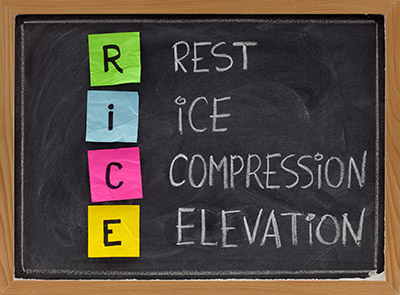 R REST
i iCE
C COMPRESSiON
E ELEVATiON